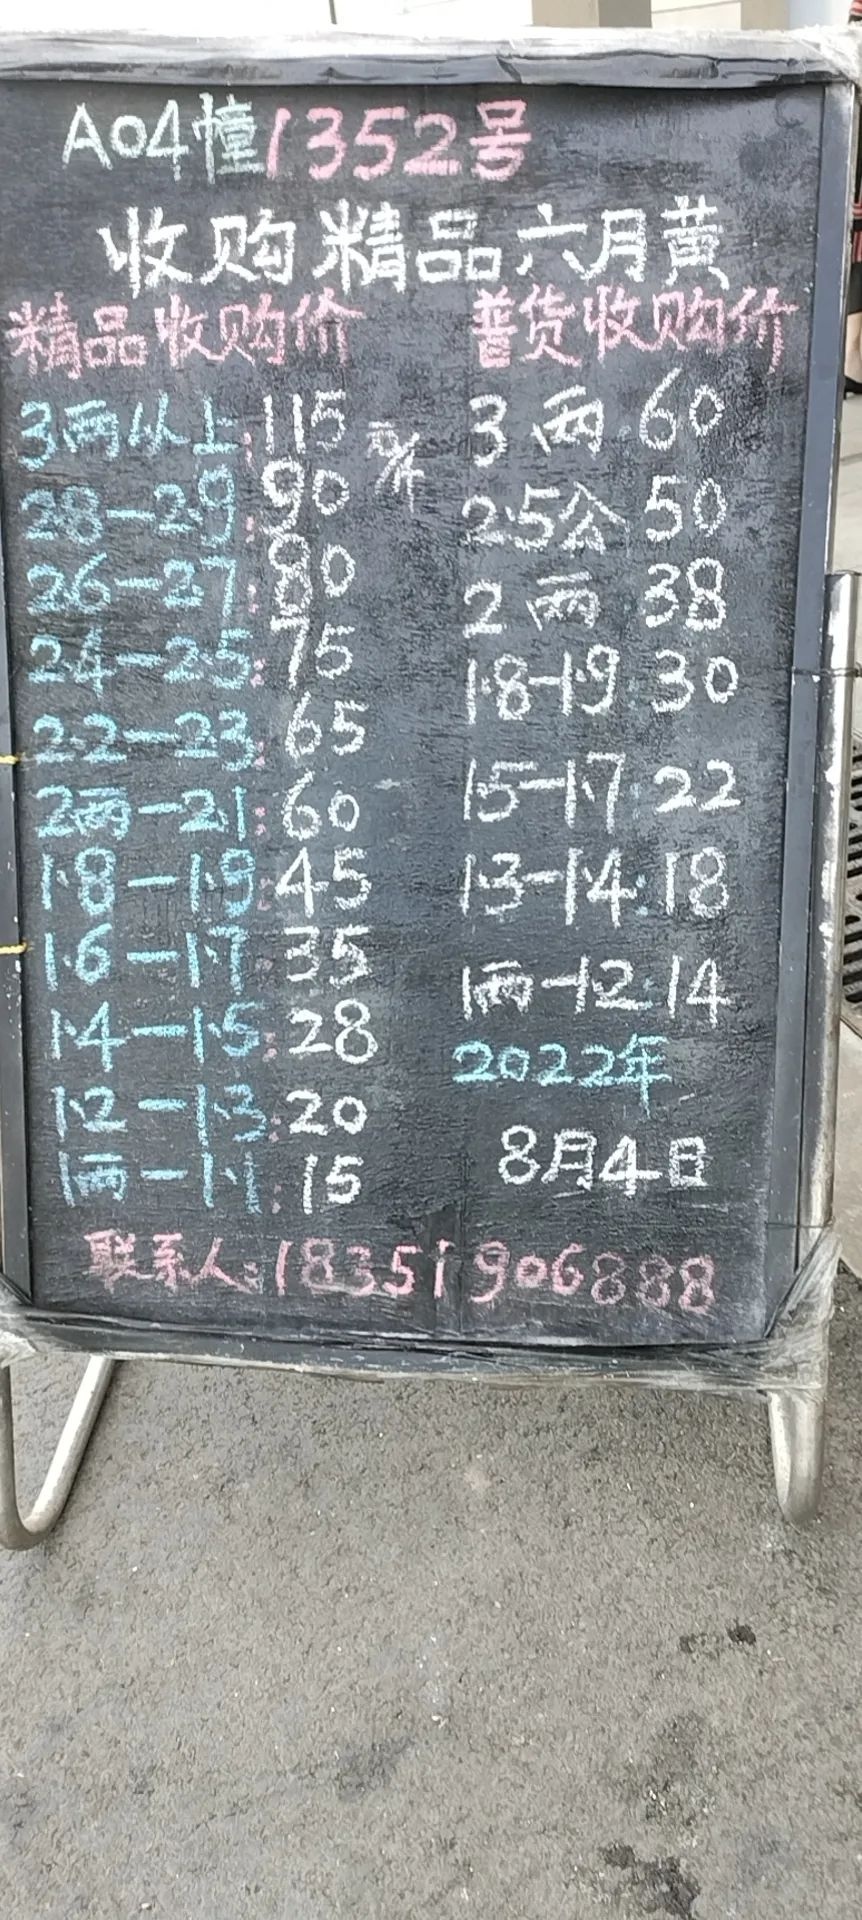 A04幢1352号
收购精品六月黄
精品收购价
3两以上:115元/斤
2.8-2.9:90
2.6-2.7:80
2.4-2.5:75
2.2-2.3:65
2两-2.1:60
1.8-1.9:45
1.6-1.7:35
1.4-1.5:28
1.2-1.3:20
1两-1.1:15
普货收购价
3两:60
2.5公 50
2两 38
1.8-1.9:30
1.5-1.7:22
1.3-1.4:18
1两-1.2:14
2022年
8月4日
联系人:18351906888